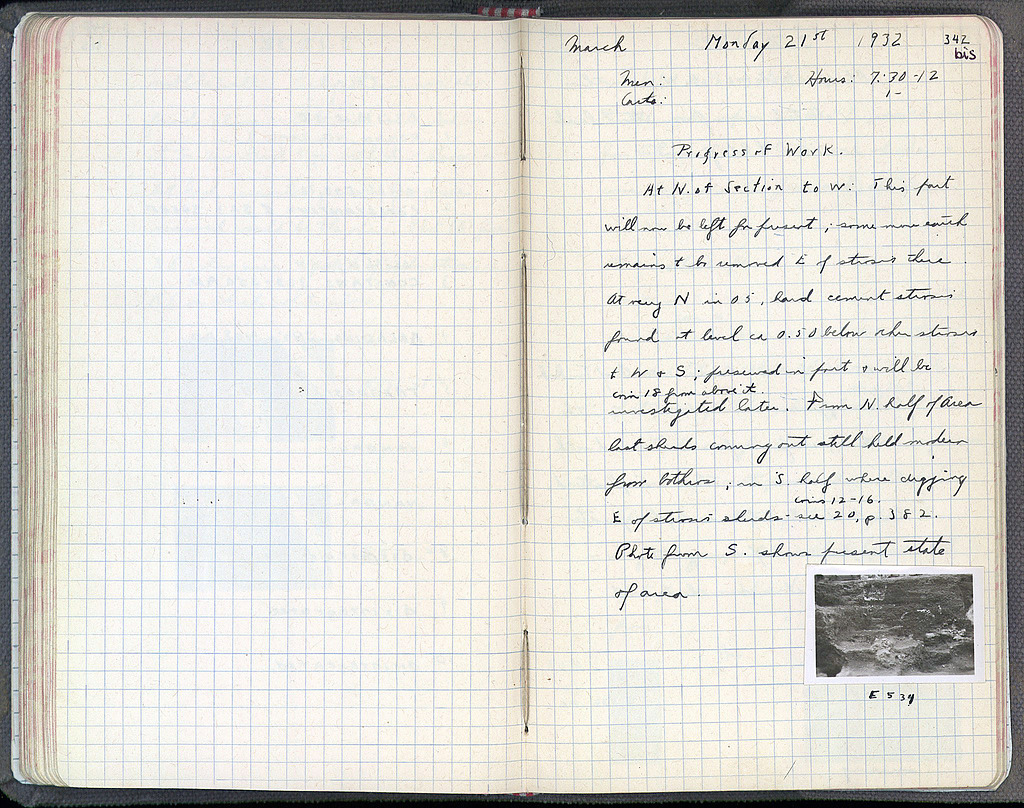 March Monday 21st 1932 342
bis
Men: Hours: 7:30-12
Carts: 1-
Progress of Work.
At N. of Section to W: This part
will now be left for present; some more earth
remains to be removed E of strosis there.
At very N in 05, hard cement strosis
found at level ca 0.50 below other strosis
to W & S; preserved in part & will be
coin 18 from above it
investigated later. From N. half of area
last sherds coming out still held modern
from bothros; in S. half where digging
coins 12-16.
E of strosis sherds - see 20, p. 382.
Photo from S. shows present state
of area.
E 534